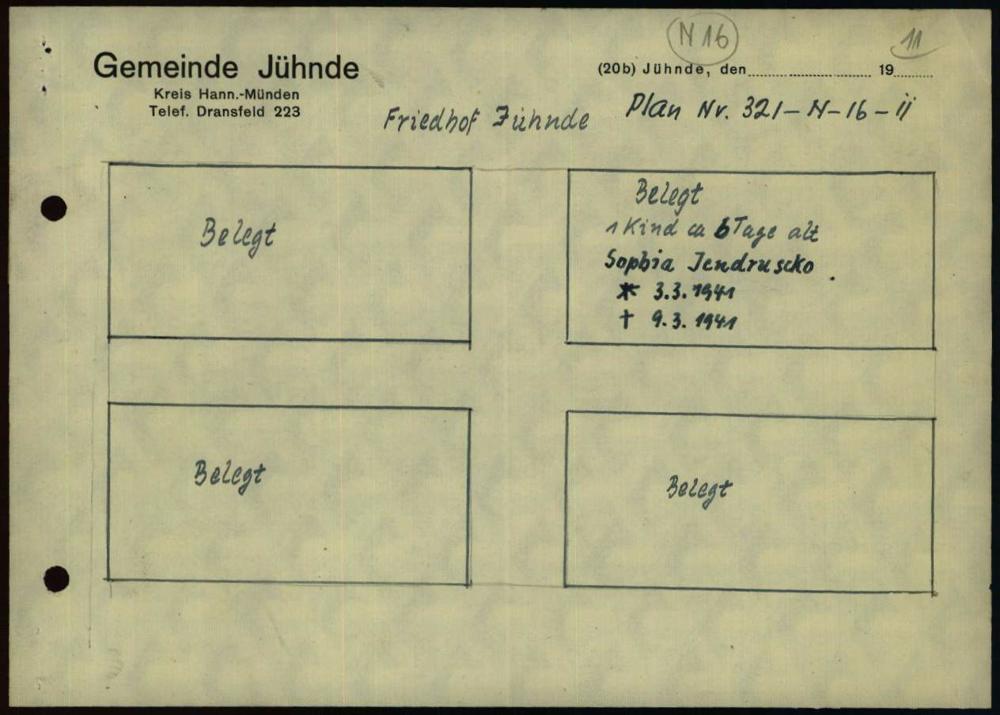 N 16
11
Gemeinde Jühnde
Kreis Hann.-Münden
Telef. Dransfeld 223
(20b) Jühnde, den.................... 19........
Friedhof Jühnde
Plan Nr. 321-N-16-ii
Belegt
Belegt
1 Kind ca 6 Tage alt
Sophia Jendruscko.
* 3.3.1941
† 9.3.1941
Belegt
Belegt